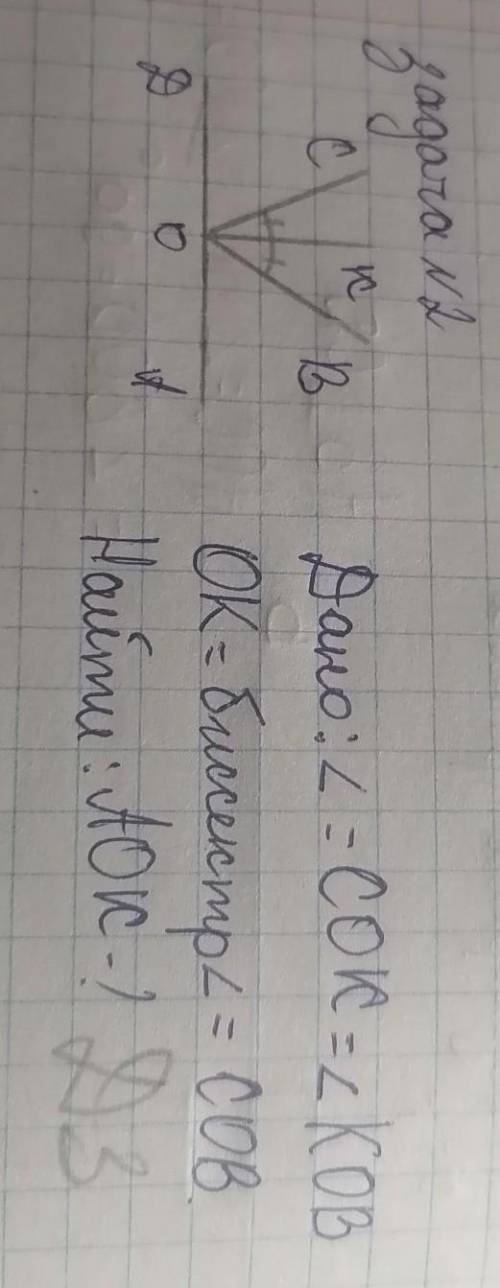 Задача №2
C
K
B
Д
O
A
Дано: ∠ = COK = ∠ KOB
OK = биссектр ∠ = COB
Найти: AOK - ?
ДЗ